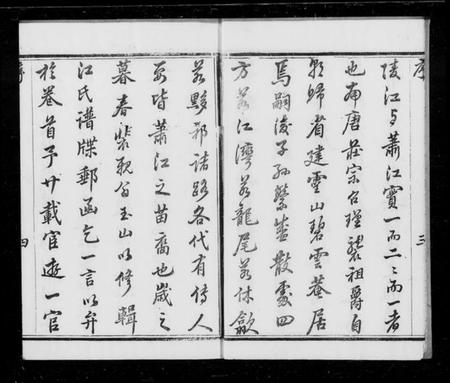 序
陵江与蕭江實一而二二而一者
也南唐莊宗召瑾襲祖爵自
歸省建雲山碧雲菴居
焉嗣後子孫繁盛散處四
方若江灣若龍尾若休歙
三
若黟祁諸路各代有傳人
要皆蕭江之苗裔也歲之
暮春裴覲公玉山以修輯
江氏譜牒郵函乞一言以弁
於卷首予廿載宦遊一官
序
四